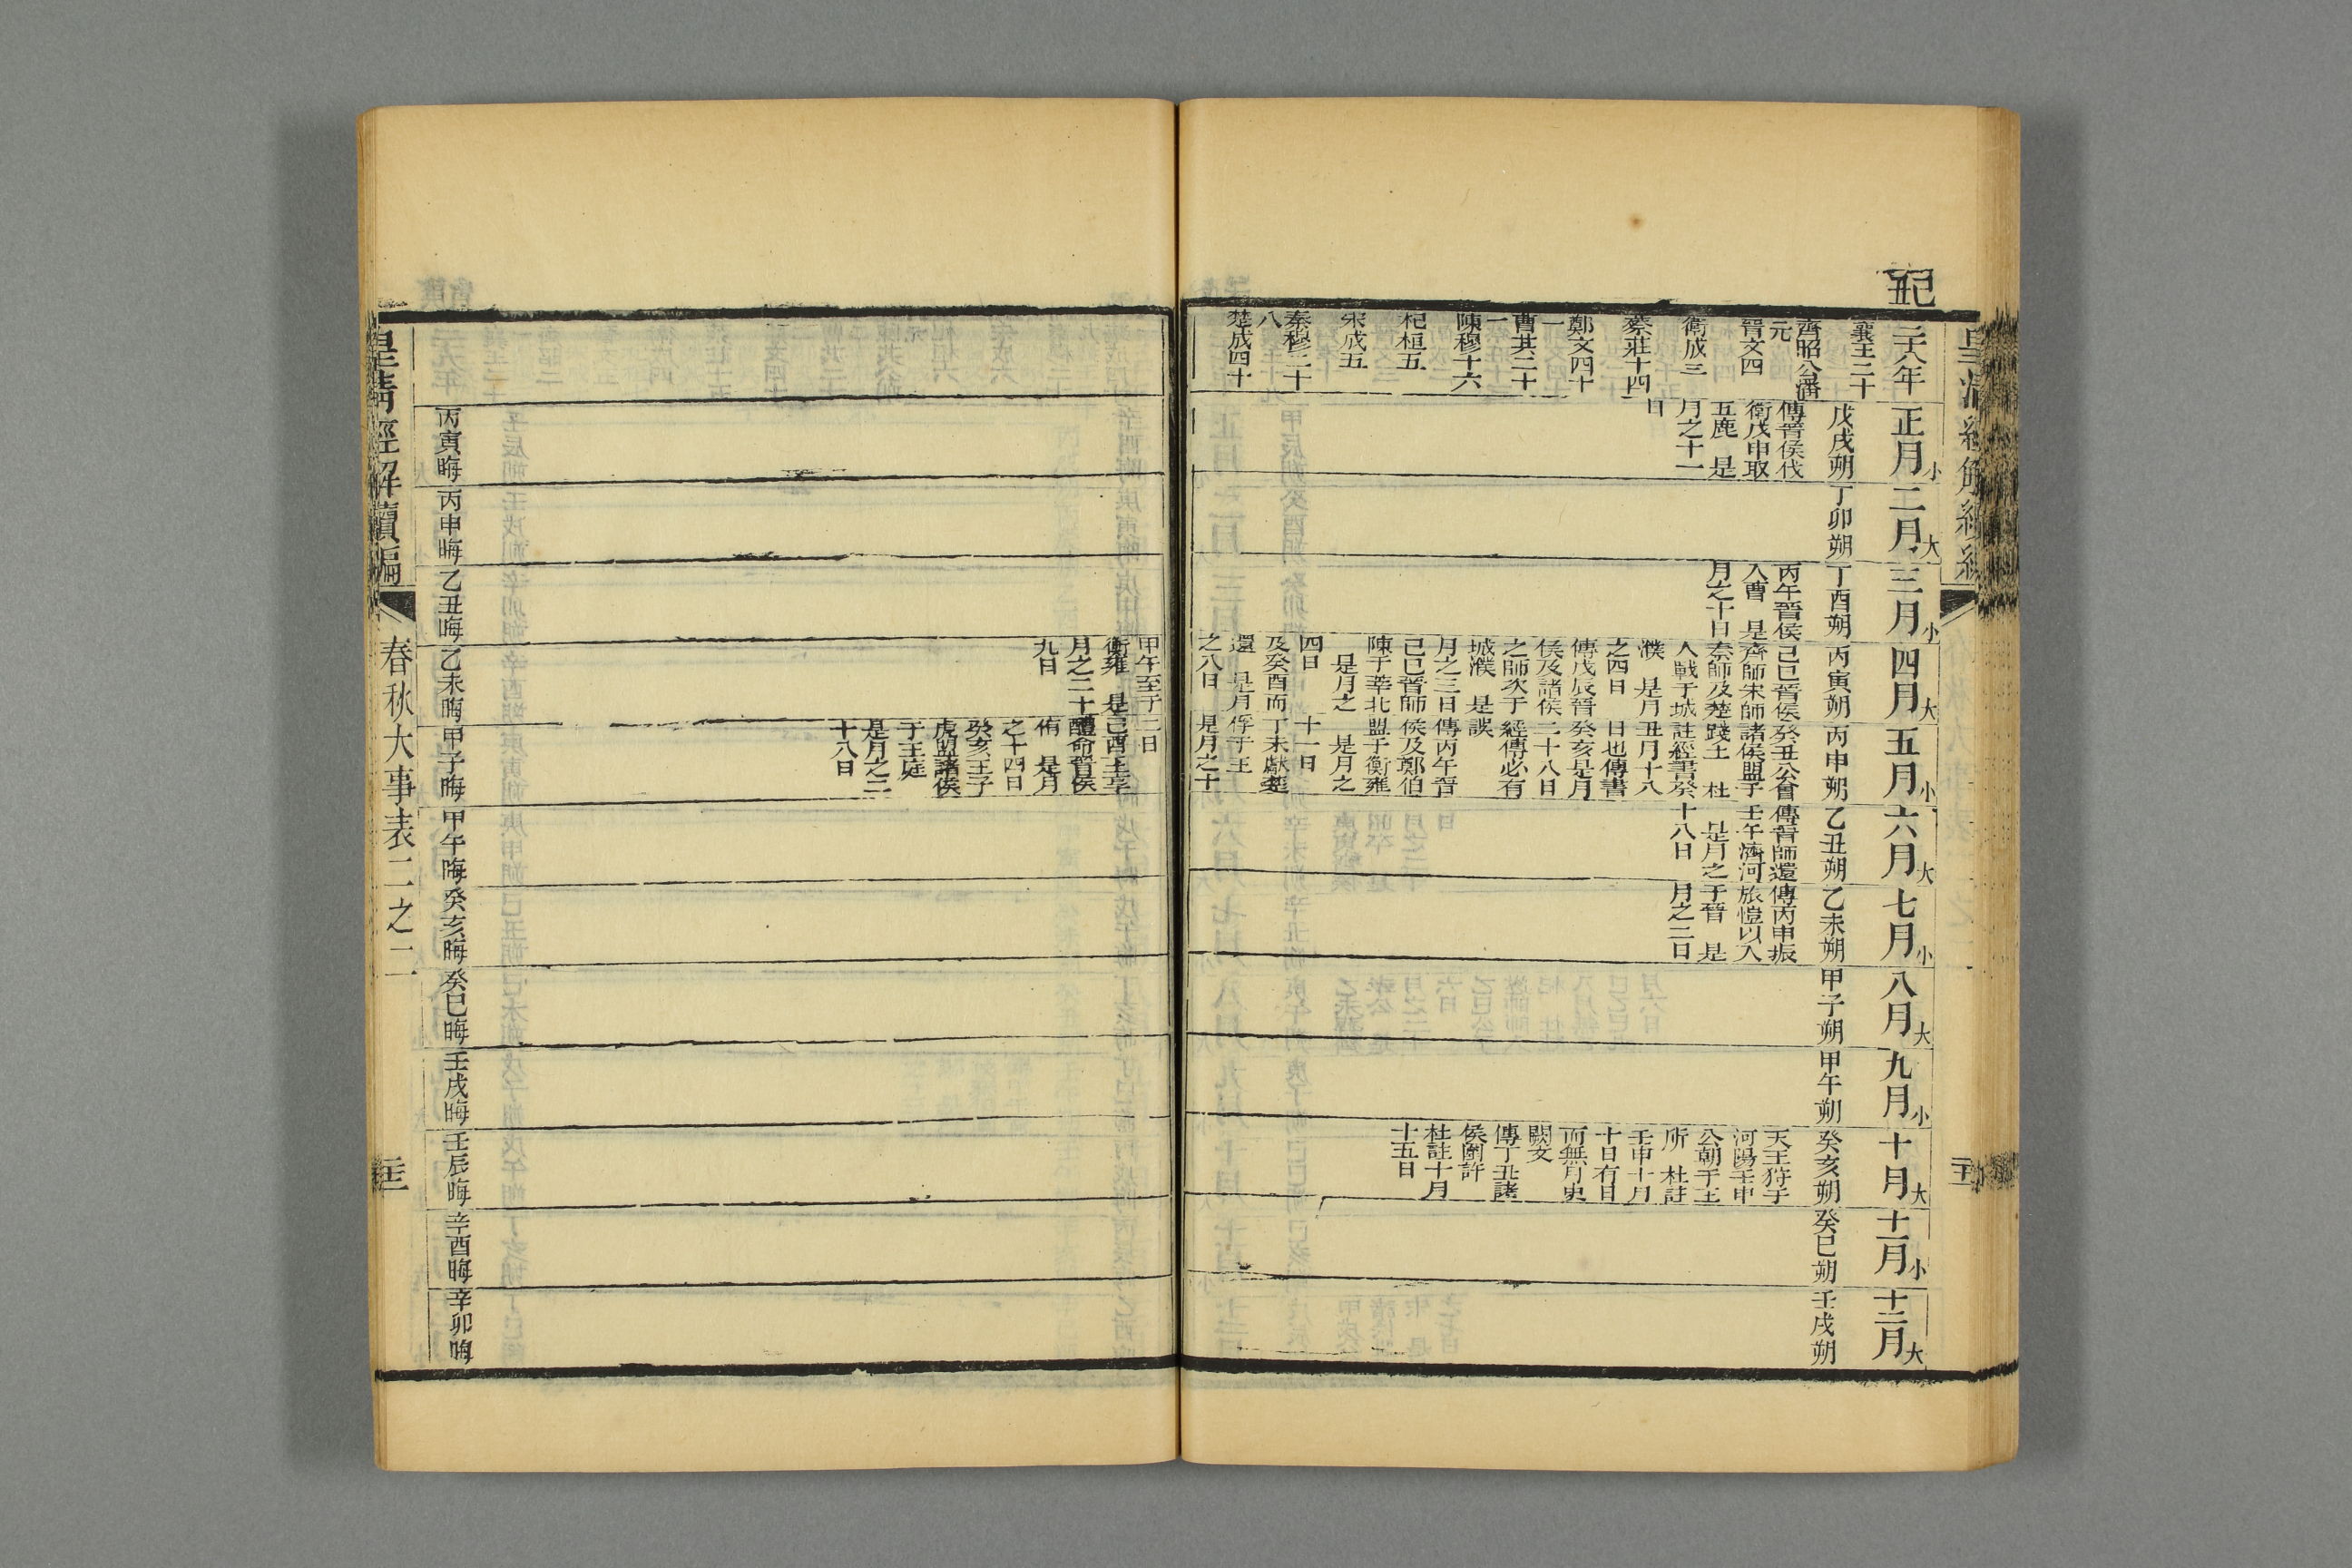 己丑
皇清經解續編
二十八年
襄王二十
齊昭公潘
元
晉文四
衛成三
蔡莊十四
鄭文四十
一
曹共二十
一
陳穆十六
杞桓五
宋成五
秦穆二十
八
楚成四十
正月小
戊戌朔
傳晉侯伐
衛戊申取
五鹿 是
月之十一
日
丙寅晦
二月大
丁卯朔
丙申晦
三月小
丁酉朔
丙午晉侯
入曹 是
月之十日
乙丑晦
四月大
丙寅朔
己巳晉侯
齊師宋師
秦師及楚
人戰于城
濮 是月
之四日
傳戊辰晉
侯及諸侯
之師次于
城濮 是
月之三日
己巳晉師
陳于莘北
是月之
四日
及癸酉而
還 是月
之八日
甲午至于
衡雍 是
月之二十
九日
乙未晦
五月小
丙申朔
癸丑公會
諸侯盟于
踐土 杜
註經書癸
丑月十八
日也傳書
癸亥是月
二十八日
經傳必有
誤
傳丙午晉
侯及鄭伯
盟于衡雍
是月之
十一日
丁未獻楚
俘于王
是月之十
二日
己酉王享
醴命晉侯
侑 是月
之十四日
癸亥王子
虎盟諸侯
于王庭
是月之二
十八日
甲子晦
六月大
乙丑朔
傳晉師還
壬午濟河
是月之
十八日
甲午晦
七月小
乙未朔
傳丙申振
旅愷以入
于晉 是
月之二日
癸亥晦
八月大
甲子朔
癸巳晦
九月小
甲午朔
壬戌晦
十月大
癸亥朔
天王狩于
河陽壬申
公朝于王
所 杜註
壬申十月
十日有日
而無月史
闕文
傳丁丑諸
侯圍許
杜註十月
十五日
壬辰晦
十一月小
癸巳朔
辛酉晦
十二月大
壬戌朔
辛卯晦
皇清經解續編
春秋大事表二之二